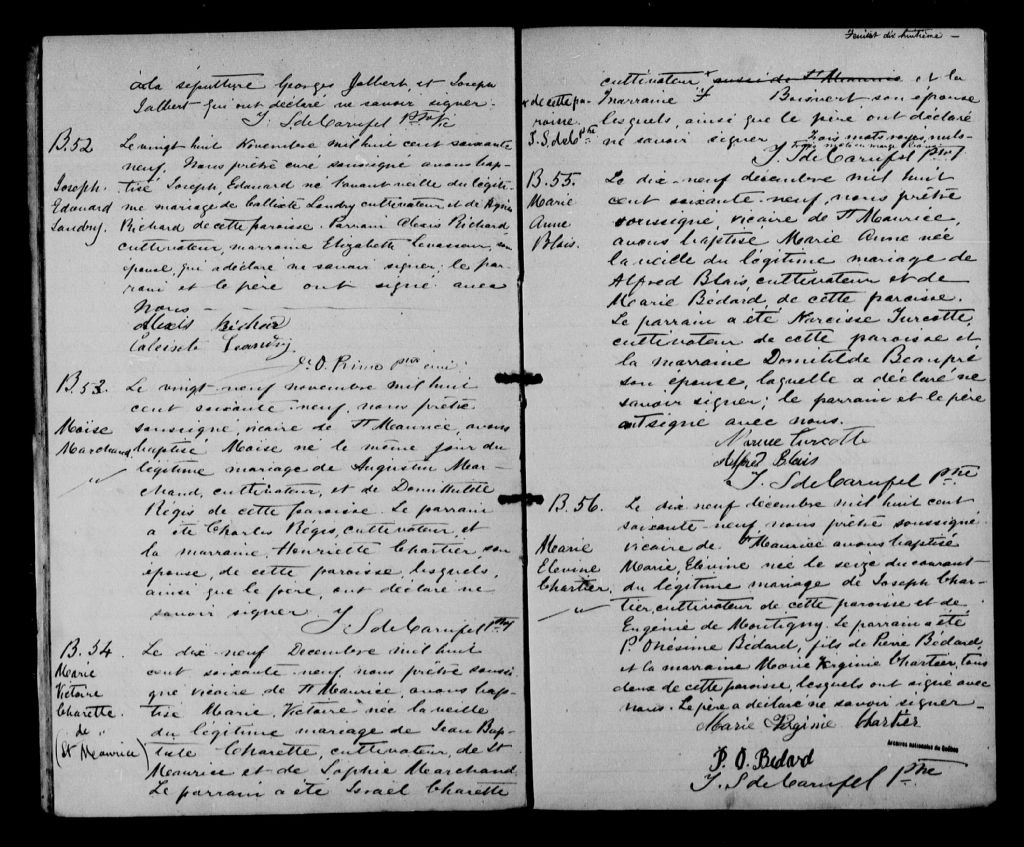 à la sépulture Georges Jalbert et Joseph
Jalbert qui ont déclaré ne savoir signer.
J. S de Carufel Ptre Vic
B. 52
Joseph.
Edouard
Landry.
Le vingt huit Novembre mil huit cent soixante
neuf, Nous prêtre curé soussigné avons bap-
tisé Joseph, Edouard né l'avant veille du légiti-
me mariage de Calixte Landry cultivateur et de Agnès
Richard de cette paroisse. Parrain Alexis Richard
cultivateur, marraine Elizabeth Levasseur, son
épouse, qui a déclaré ne savoir signer; le par-
rain et le père ont signé avec
Nous
Alexis Richard
Calixte Landry
J. O. Prince ptre curé.
B. 53.
Moïse
Marchand
Le vingt-neuf novembre mil huit
cent soixante-neuf, nous prêtre
soussigné, vicaire de St Maurice, avons
baptisé Moïse né le même jour du
légitime mariage de Augustin Mar-
chand, cultivateur, et de Domithilde
Régis de cette paroisse. Le parrain
a été Charles Régis, cultivateur, et
la marraine, Henriette Chartier, son
épouse, de cette paroisse, lesquels,
ainsi que le père, ont déclaré ne
savoir signer.
J. S de Carufel Ptre
B. 54
Marie
Victoire
Charette.
de
(St Maurice)
Le dix-neuf Decembre mil huit
cent soixante neuf, nous prêtre soussi-
gné vicaire de St Maurice, avons bap-
tisé Marie, Victoire née la veille
du légitime mariage de Jean Bap-
tiste Charette, cultivateur, de St
Maurice et de Sophie Marchand.
Le parrain a été Israel Charette
Feuillet dix huitième
cultivateur * aussi de St Maurice et la
marraine Boisvert son épouse
lesquels, ainsi que le père ont déclaré
ne savoir signer
* de cette pa-
roisse.
J. S. de C. ptre
Trois mots rayés nuls
J. S de Carufel Ptre
B. 55.
Marie
Anne
Blais.
Le dix-neuf décembre mil huit
cent soixante-neuf, nous prêtre
soussigné, vicaire de St Maurice,
avons baptisé Marie Anne née
la veille du légitime mariage de
Alfred Blais, cultivateur et de
Marie Bédard, de cette paroisse.
Le parrain a été Narcisse Turcotte,
cultivateur de cette paroisse et
la marraine Domitilde Beaupré
son épouse, laquelle a déclaré ne
savoir signer; le parrain et le père
ont signé avec nous.
Narcisse Turcotte
Alfred Blais
J. S de Carufel Ptre
B. 56.
Marie
Elevine
Chartier.
Le dix-neuf décembre mil huit cent
soixante neuf, nous prêtre soussigné
vicaire de St Maurice avons baptisé
Marie, Elévine née le seize du courant
du légitime mariage de Joseph Char-
tier, cultivateur de cette paroisse et de
Eugénie de Montigny. Le parrain a été
P. Onésime Bédard, fils de Pierre Bédard
et la marraine Marie Virginie Chartier, tous
deux de cette paroisse, lesquels ont signé avec
nous. Le père a déclaré ne savoir signer
Marie Virginie Chartier
P. O. Bédard
J. S de Carufel Ptre
Archives nationales du Québec